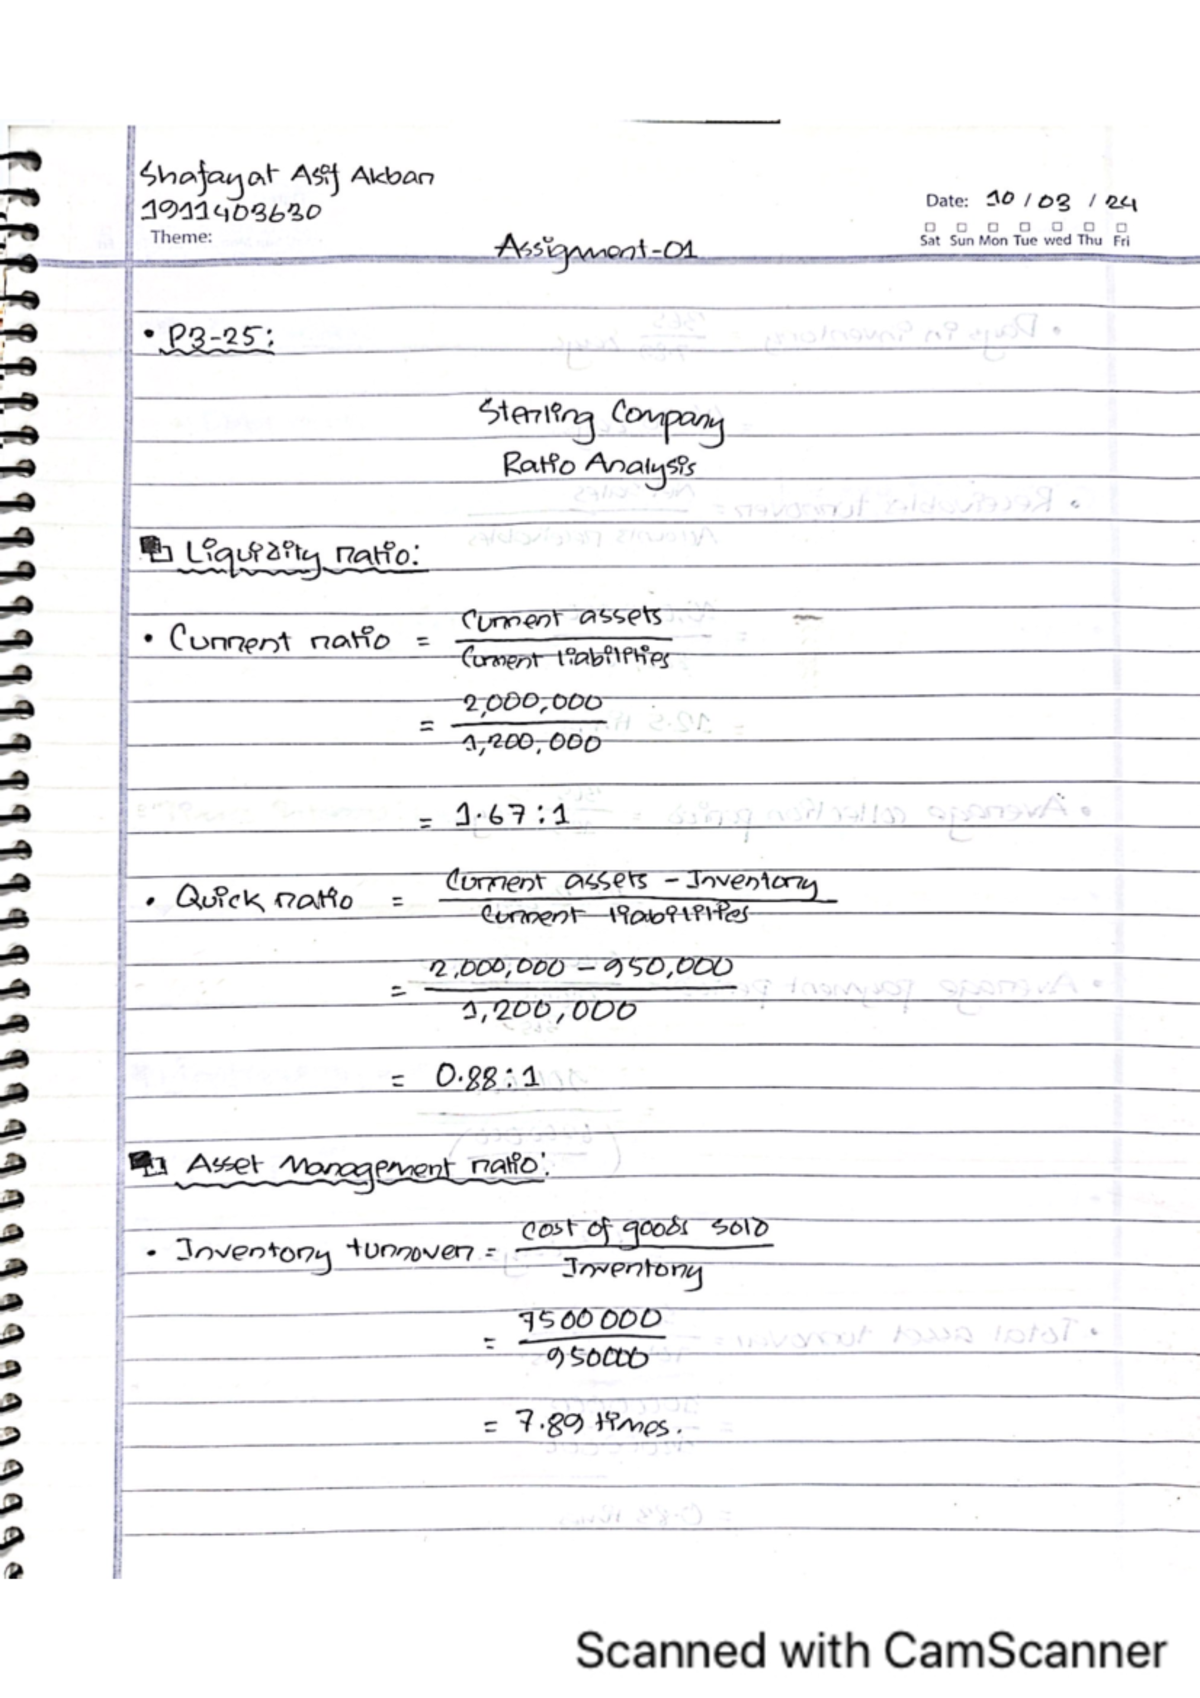 Shafayat Asif Akbar
1911403630
Date: 10 / 03 / 24
Theme:
Sat Sun Mon Tue wed Thu Fri
Assigment-01
• P3-25:
Sterling Company
Ratio Analysis
Liquidity ratio:
• Current ratio = Current assets / Current liabilities
= 2,000,000 / 1,200,000
= 1.67:1
• Quick ratio = Current assets - Inventory / Current liabilities
= 2,000,000 - 950,000 / 1,200,000
= 0.88:1
Asset Management ratio:
• Inventory turnover = cost of goods sold / Inventory
= 7500000 / 950000
= 7.89 times.
Scanned with CamScanner